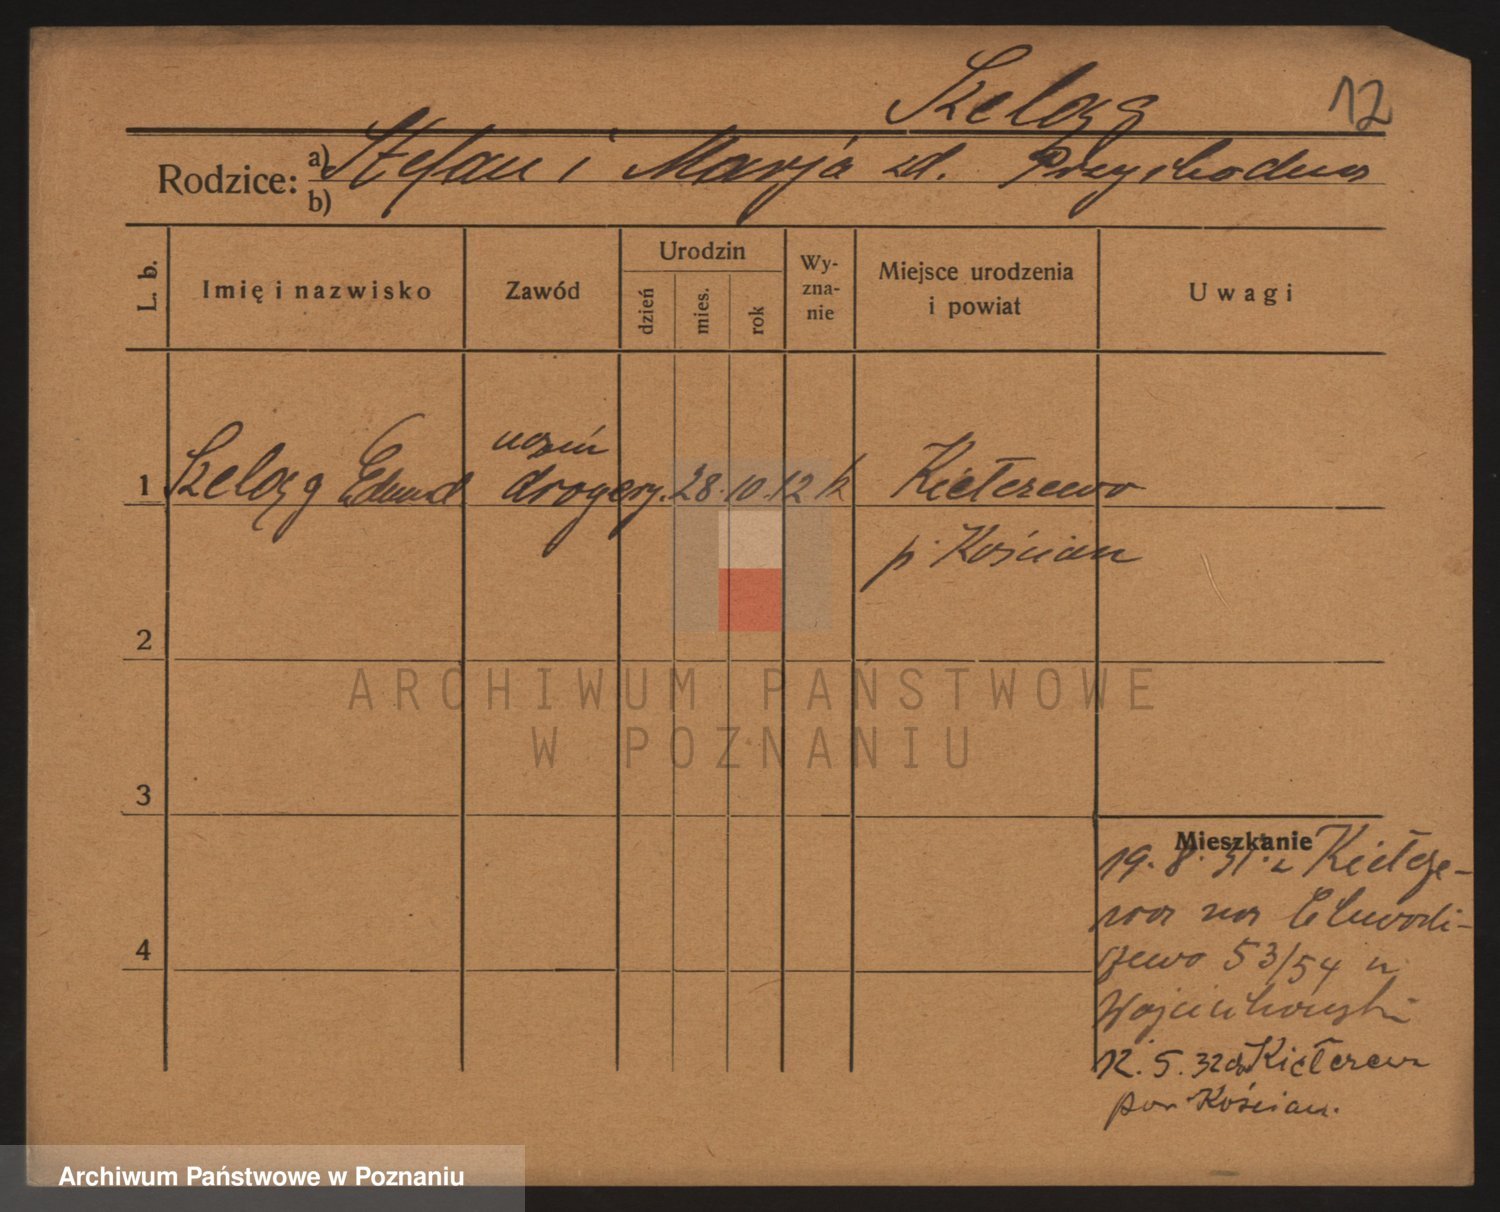 Szeląg 12
Rodzice: a) Stefan i Marja zd. Przychodna
b)
L. b. Imię i nazwisko Zawód Urodzin dzień mies. rok Wy-zna-nie Miejsce urodzenia i powiat Uwagi
uczeń
1 Szeląg Edmund drogery. 28. 10. 12 k Kiełczewo
p. Kościan
2
ARCHIWUM PAŃSTWOWE
W POZNANIU
3
Mieszkanie
19. 8. 31. z Kiełcze-
wa na
53/54 u
Wojciechowski
12. 5. 32 do Kiełczewa
pow Kościan.
4
Archiwum Państwowe w Poznaniu